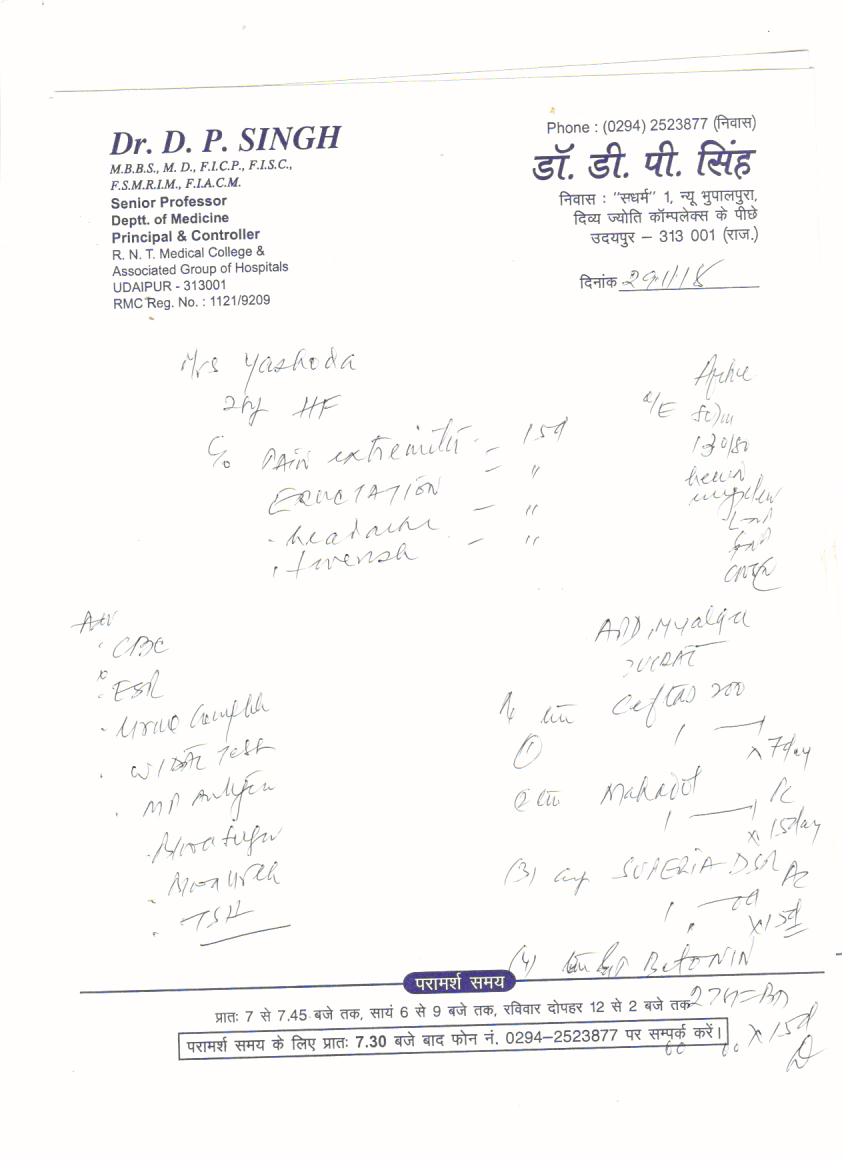 Dr. D. P. SINGH
M.B.B.S., M. D., F.I.C.P., F.I.S.C.,
F.S.M.R.I.M., F.I.A.C.M.
Senior Professor
Deptt. of Medicine
Principal & Controller
R. N. T. Medical College &
Associated Group of Hospitals
UDAIPUR - 313001
RMC Reg. No. : 1121/9209
Phone : (0294) 2523877 (निवास)
डॉ. डी. पी. सिंह
निवास : "सधर्म" 1, न्यू भुपालपुरा,
दिव्य ज्योति कॉम्पलेक्स के पीछे
उदयपुर – 313 001 (राज.)
दिनांक 29/1/18
Mrs Yashoda
HF
C/o PAIN extremities - 15d
ERUCTATION - "
. headache - "
. - "
O/E
130/80
Adv
. CBC
. ESR
. Urine Complete
. WIDAL Test
. MP Antigen
. Blood Sugar
. Blood Urea
. TSH
Myalgia
Ceftas 200
(1)
x 7day
x 15day
(3) cap SUPERIA-DSR
x 15d
(4) BetONIN
x 15d
परामर्श समय
प्रातः 7 से 7.45 बजे तक, सायं 6 से 9 बजे तक, रविवार दोपहर 12 से 2 बजे तक
परामर्श समय के लिए प्रातः 7.30 बजे बाद फोन नं. 0294–2523877 पर सम्पर्क करें।